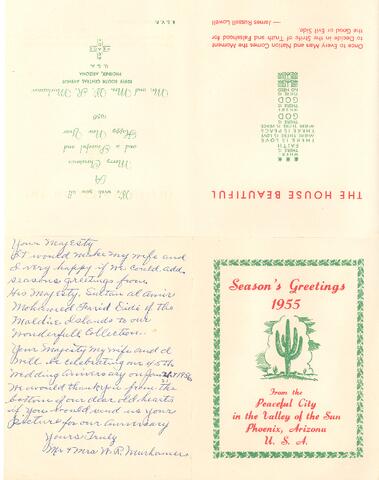 THE HOUSE BEAUTIFUL
WHERE
THERE IS
FAITH
THERE IS LOVE
WHERE THERE IS LOVE
THERE IS PEACE
WHERE THERE IS PEACE
THERE IS
GOD
WHERE
THERE IS
GOD
THERE IS
NO NEED
Once to Every Man and Nation Comes the Moment
to Decide in the Strife of Truth and Falsehood for
the Good or Evil Side.
— James Russell Lowell
We wish you all
A
Merry Christmas
and a Peaceful and
Happy New Year
1956
Mr. and Mrs. W. R.
South Central Avenue
PHOENIX, ARIZONA
U. S. A.
R.S.V.P.
Your Majesty
It would make my wife and
I very happy if we could add
seasons greetings from
His Majesty, Sultan al amir
Mohamed Farid Didi of the
Maldive Islands to our
Wonderfull Collection...
Your Majesty my wife and I
will be celebrating our 45th
Wedding anniversary on Jan 1956
We would thank you from the
bottom of our dear old hearts
if you would send us your
picture for our anniversary
Yours Truly
Mr & Mrs W.R.
Season's Greetings
1955
From the
Peaceful City
in the Valley of the Sun
Phoenix, Arizona
U. S. A.